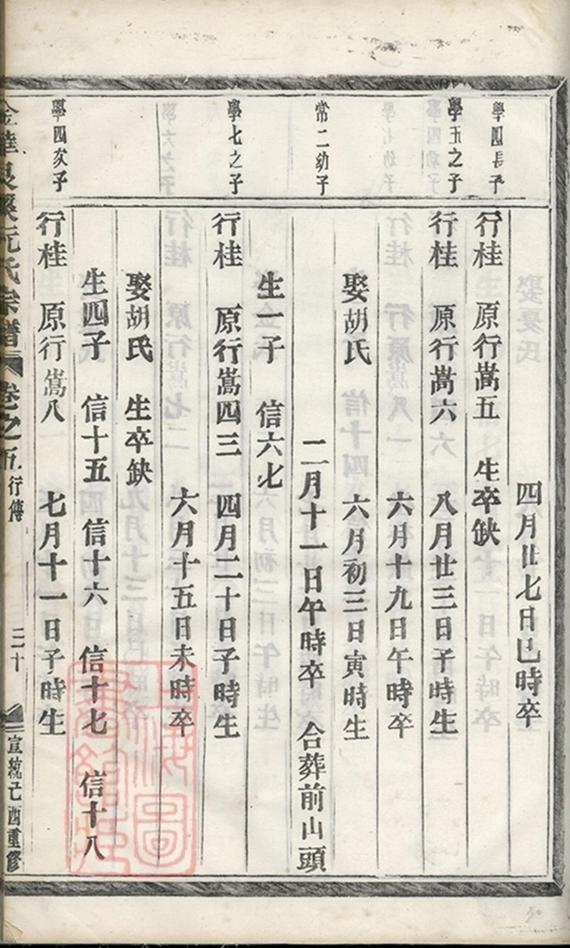 四月廿七日巳時卒
學四長子
行桂 原行嵩五 生卒缺
學五之子
行桂 原行嵩六 八月廿三日子時生
六月十九日午時卒
娶胡氏 六月初三日寅時生
常二幼子
二月十一日午時卒 合葬前山頭
生一子 信六七
學七之子
行桂 原行嵩四三 四月二十日子時生
六月十五日未時卒
娶胡氏 生卒缺
生四子 信十五 信十六 信十七 信十八
學四次子
行桂 原行嵩八 七月十一日子時生
阮氏宗譜 卷之五 行傳 三十 宣統己酉重修